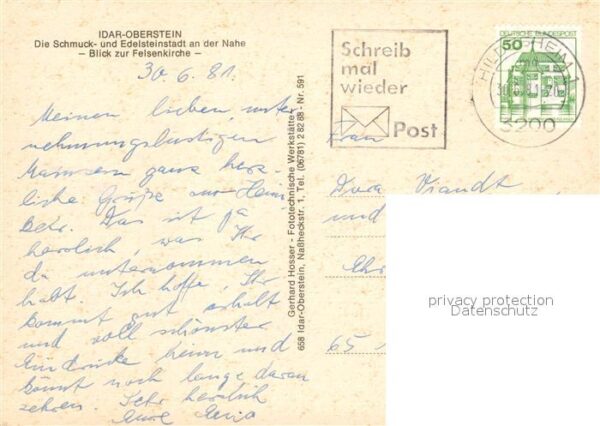 IDAR-OBERSTEIN
Die Schmuck- und Edelsteinstadt an der Nahe
– Blick zur Felsenkirche –
30.6.81.
Meinen lieben, unter
nehmungslustigen
Mainzern ganz herz-
liche Grüße
Das ist ja
herrlich, was Ihr
da unternommen
habt. Ich hoffe, Ihr
kommt gut erholt
und voll schönster
Eindrücke heim und
könnt noch lange daran
zehren. Sehr herzlich
Eure
Gerhard Hosser - Fototechnische Werkstätte
658 Idar-Oberstein, Naßheckstr. 1, Tel. (06781) 2 82 88 - Nr. 591
Schreib
mal
wieder
Post
DEUTSCHE BUNDESPOST
50
HILDESHEIM 1
3200
Frau
Dora Viandt
und
65
privacy protection
Datenschutz